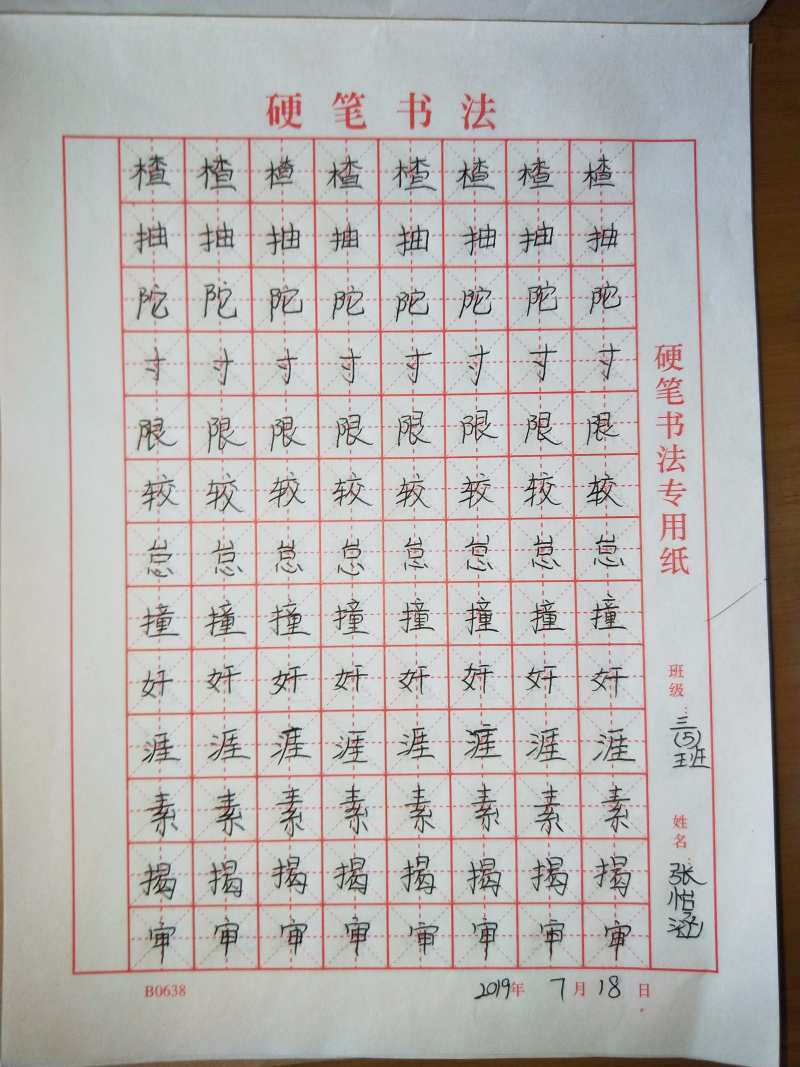 硬笔书法
楂楂楂楂楂楂楂楂
抽抽抽抽抽抽抽抽
陀陀陀陀陀陀陀陀
寸寸寸寸寸寸寸寸
限限限限限限限限
较较较较较较较较
怠怠怠怠怠怠怠怠
撞撞撞撞撞撞撞撞
奸奸奸奸奸奸奸奸
涯涯涯涯涯涯涯涯
素素素素素素素素
揭揭揭揭揭揭揭揭
审审审审审审审审
硬笔书法专用纸
班级 三(5)班
姓名 张怡涵
B0638
2019年 7月18日